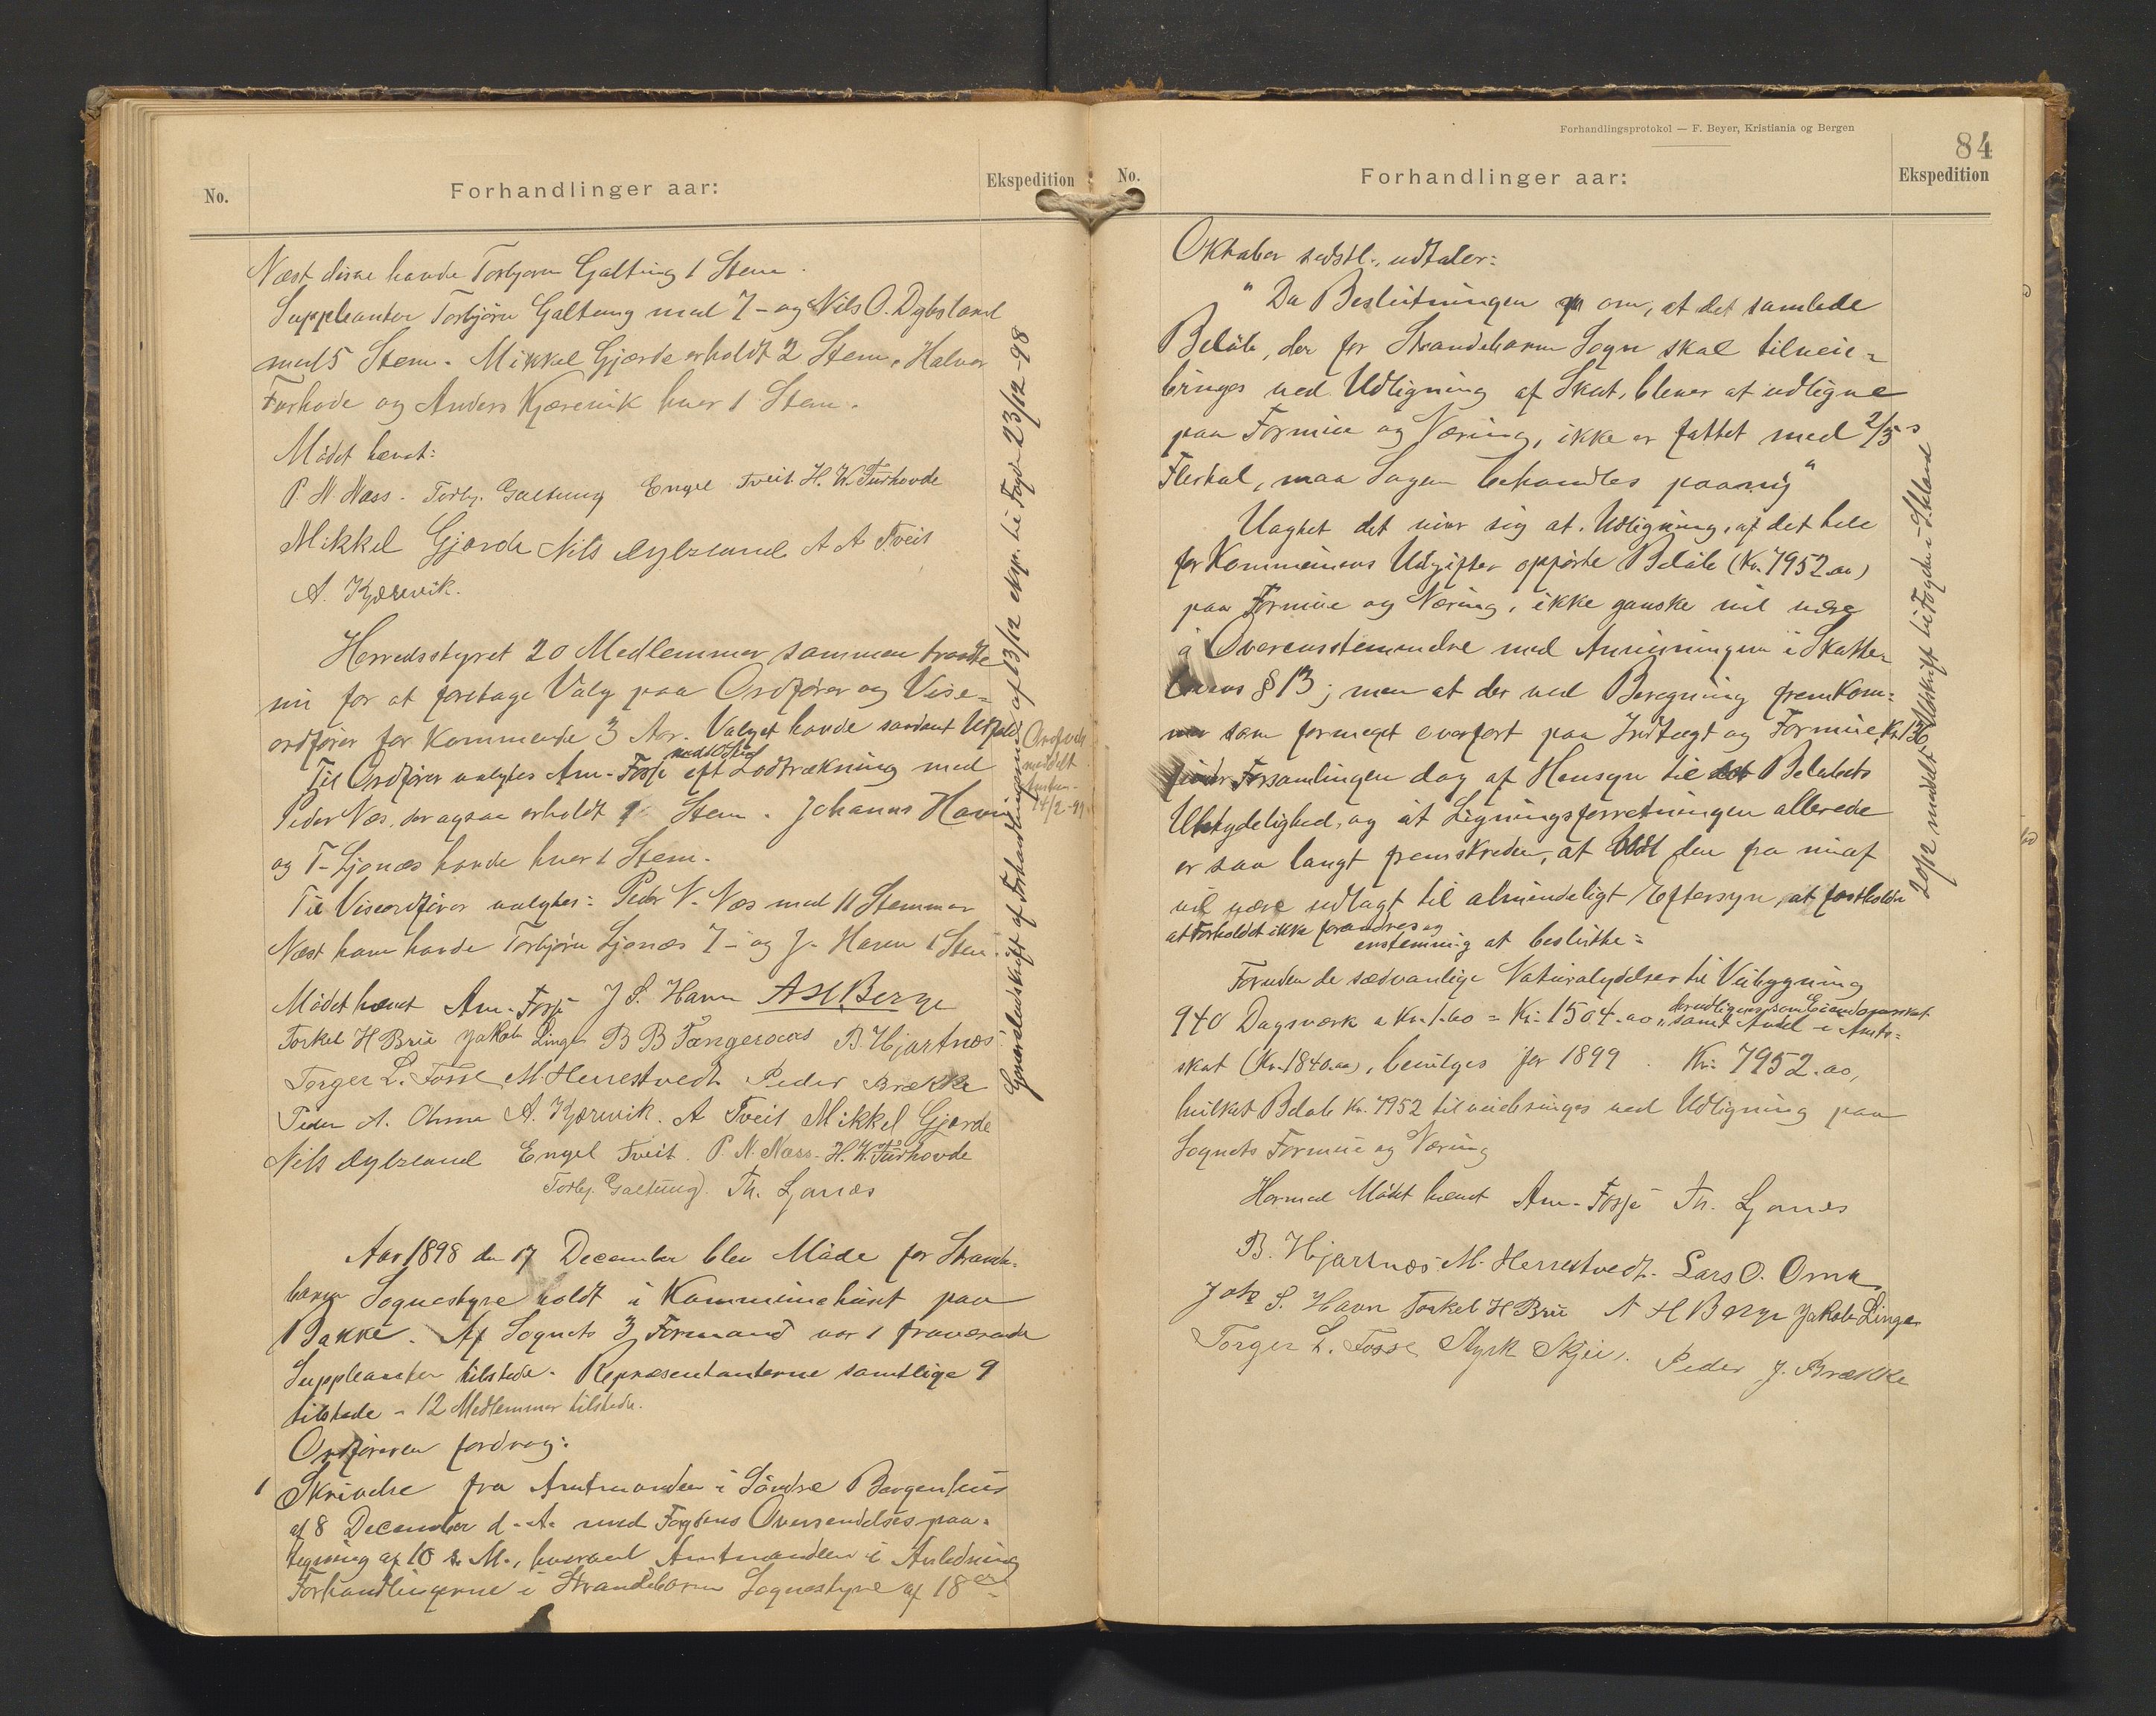 No.
Forhandlinger aar:
Ekspedition
Næst disse havde Torbjørn Galtung 1 Stem.
Suppleanter Torbjørn Galtung med 7 - og Nils O. Dybsland
med 5 Stem. Mikkel Gjerde erholdt 2 Stem, Halvor
Furhovde og Anders Kjærevik hver 1 Stem.
Mödet hævet:
P. N. Næss. Torbj. Galtung Engel Tveit H. W. Furhovde
Mikkel Gjerde Nils Dybsland A A Tveit
A. Kjærevik.
Herredsstyret 20 Medlemmer sammen traadte
nu for at foretage Valg paa Ordfører og Vise-
ordfører for kommende 3 Aar. Valget havde saadant Udfald
Til Ordfører valgtes Am. Fosse med Stem eft Lodtrækning med
Peder Næs, der ogsaa erholdt Stem. Johannes Havn
og T. Ljonæs havde hver 1 Stem.
Til Viseordfører valgtes: Peder N. Næs med 11 Stemmer
Næst ham havde Torbjørn Ljonæs 7 - og J. Havn 1 Stem.
Mödet hævet Am. Fosse J S. Havn A H Berge
Torkel H Bru Jakob Linga B B Tangeraas B. Hjartnæs
Torger L. Fosse M. Herrestvedt Peder Brække
Peder A. Oma A. Kjærevik. A Tveit Mikkel Gjerde
Nils Dybsland Engel Tveit. P. N. Næss. H. W. Furhovde
Torbj. Galtung. Th. Ljonæs
Ordførerv
meddelt
Amtm.
14/2-99
Generaludskrift af Forhandlingerne af 13/12 exp. til Fogden 23/12-98
Aar 1898 den 17 December blev Møde for Strande-
barm Sognestyre holdt i Kommunehuset paa
Bakke. Af Sognets 3 Formænd var 1 fraværende
Suppleanten tilstede. Repræsentanterne samtlige 9
tilstede - 12 Medlemmer tilstede.
Ordføreren fordrog:
1 Skrivelse fra Amtmanden i Söndre Bergenhus
af 8 December d. A. med Fogdens Oversendelsespaa-
tegning af 10 s. M., hvorved Amtmanden i Anledning
Forhandlingerne i Strandebarm Sognestyre af 18de
Forhandlingsprotokol — F. Beyer, Kristiania og Bergen
84
No.
Forhandlinger aar:
Ekspedition
Oktober sidstl., udtaler:
"Da Beslutningen om, at det samlede
Beløb, der for Strandebarm Sogn skal tilveie-
bringes ved Udligning af Skat, bliver at udligne
paa Formue og Næring, ikke er fattet med 2/3s
Flertal, maa Sagen behandles paany"
Uagtet det viser sig at Udligning af det hele
for Kommunens Udgifter opførte Beløb (Kr. 7952.00)
paa Formue og Næring, ikke ganske vil være
i Overensstemmelse med Anvisningen i Skatte-
lovens § 13; men at der ved Beregning fremkom-
mer som formeget overført paa Indtægt og Formue Kr 136
finder Forsamlingen dog af Hensyn til Beløbets
Ubetydelighed, og at Ligningsforretningen allerede
er saa langt fremskreden, at den fra nuaf
vil være udlagt til almindeligt Eftersyn, at fastholde
at Forholdet ikke forandres og
enstemmig at beslutte:
Foruden de sædvanlige Naturalydelser til Veibygning
940 Dagsværk a Kr. 1.60 = Kr. 1504.00, der udlignes som Eiendomsskat samt Andel i Amts-
skat (Kr. 1840.00), bevilges for 1899 . Kr. 7952.00,
hvilket Beløb Kr. 7952 tilveiebringes ved Udligning paa
Sognets Formue og Næring
Hermed Mödet hævet Am. Fosse Th. Ljones
B. Hjartnæs M. Herrestvedt. Lars O. Oma
Johs S. Havn Torkel H Bru A H Berge Jakob Linga
Torger L. Fosse Styrk Skjei. Peder J. Brække
20/12 meddelt Udskrift til Fogden i S.hland